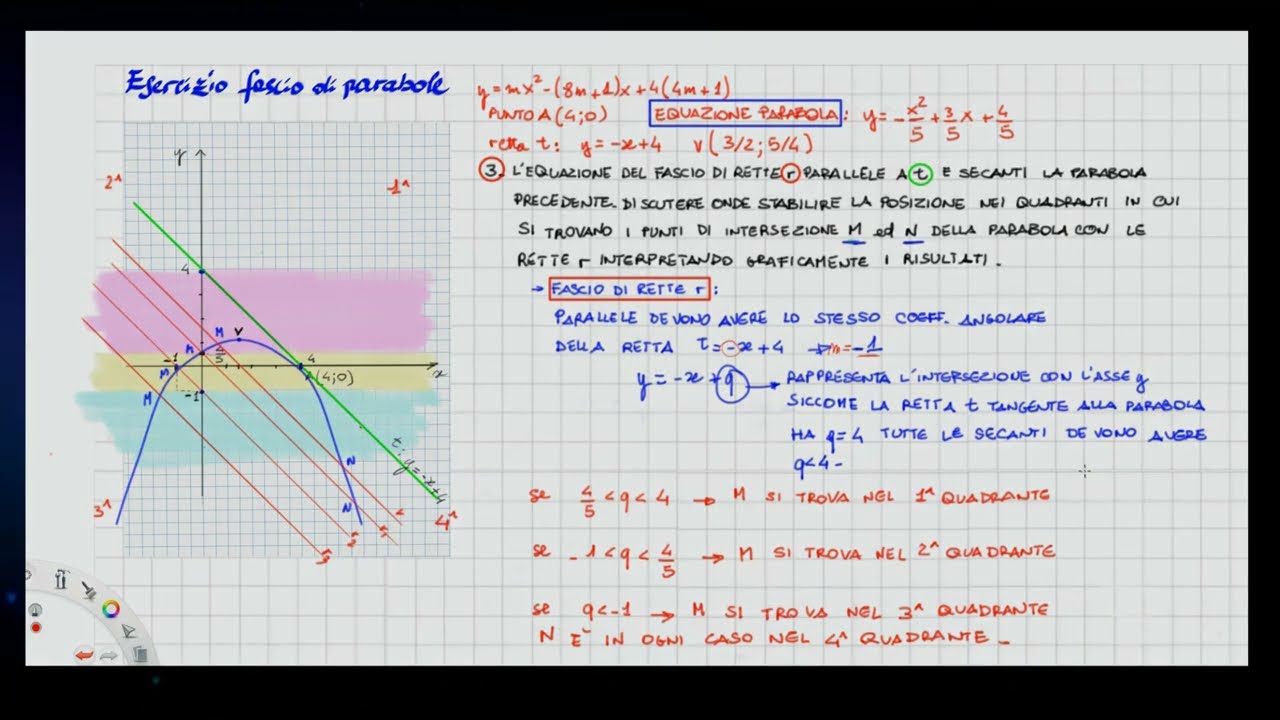 Esercizio fascio di parabole
y=mx²-(8m+1)x+4(4m+1)
PUNTO A(4;0) EQUAZIONE PARABOLA: y=-x²/5+3/5x+4/5
retta t: y=-x+4 V(3/2;5/4)
3. L'EQUAZIONE DEL FASCIO DI RETTE r PARALLELE A t E SECANTI LA PARABOLA
PRECEDENTE. DISCUTERE ONDE STABILIRE LA POSIZIONE NEI QUADRANTI IN CUI
SI TROVANO I PUNTI DI INTERSEZIONE M ed N DELLA PARABOLA CON LE
RETTE r INTERPRETANDO GRAFICAMENTE I RISULTATI.
→ FASCIO DI RETTE r:
PARALLELE DEVONO AVERE LO STESSO COEFF. ANGOLARE
DELLA RETTA t=-x+4 → m=-1
y=-x+q → RAPPRESENTA L'INTERSEZIONE CON L'ASSE y
SICCOME LA RETTA t TANGENTE ALLA PARABOLA
HA q=4 TUTTE LE SECANTI DEVONO AVERE
q<4-
se 4/5<q<4 → M SI TROVA NEL 1^ QUADRANTE
se -1<q<4/5 → M SI TROVA NEL 2^ QUADRANTE
se q<-1 → M SI TROVA NEL 3^ QUADRANTE
N E' IN OGNI CASO NEL 4^ QUADRANTE-
y
2^
1^
4
M
V
M
4/5
-1
4
x
M
A(4;0)
M
-1
t: y=-x+4
N
N
3^
4^